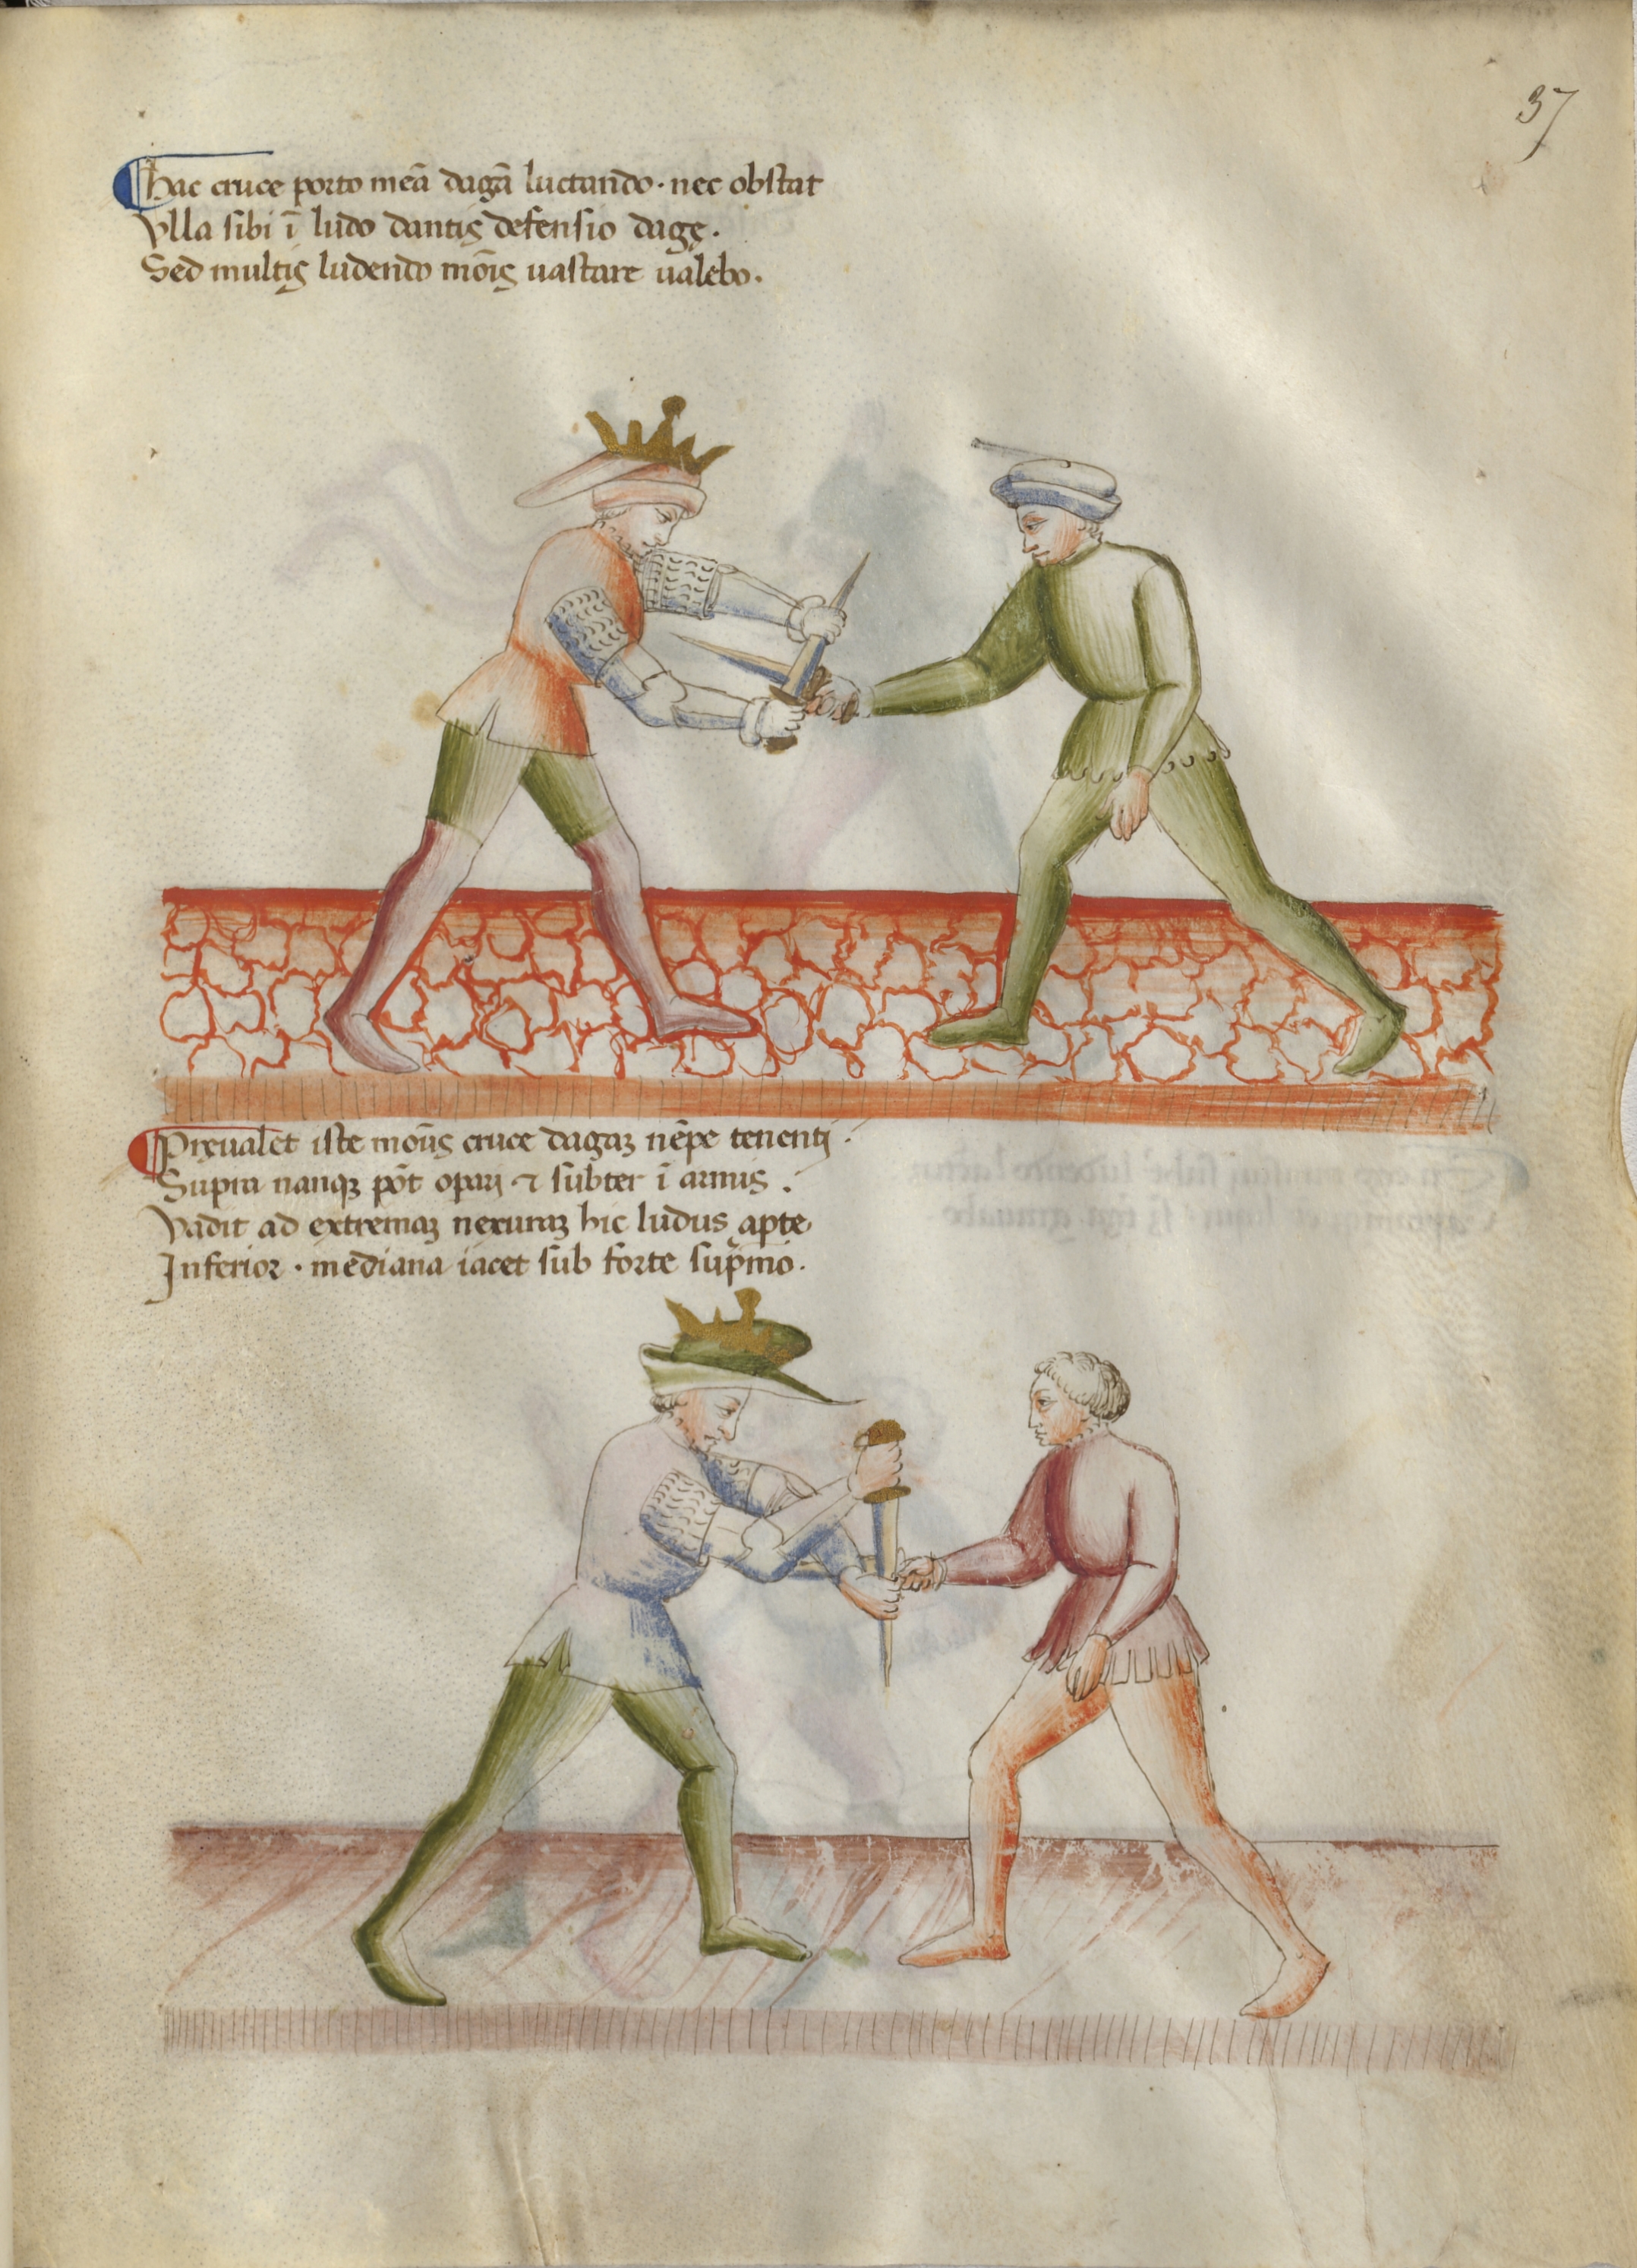 37
hac cruce porto meā dagā luctando · nec obstat
Vlla sibi ī ludo dantis defensio dagę.
Sed multis ludendo mōis uastare ualebo.
Pręualet iste modꝰ cruce dagaꝫ nēpe tenenti.
Supra nanqꝫ pōt opari ⁊ subter ī armis.
Vadit ad extremaꝫ nexuraꝫ hic ludus apte,
Inferior · mediana iacet sub forte sup̄mo.